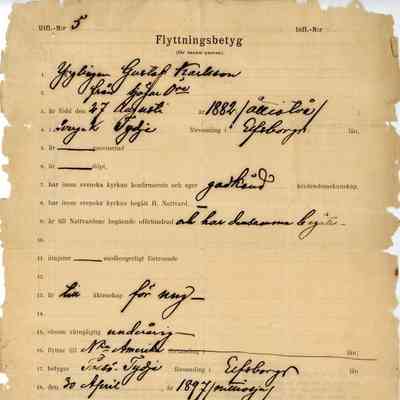 Utfl.-N:r 5 Infl.-N:r
Flyttningsbetyg
(för endast person).
1. Ynglingen Gustaf Karlsson
2. från Höjen Öra
3. är född den 27 Augusti år 1882 /åttiotvå/
4. i Sverige Tydje församling i Elfsborgs län,
5. är vaccinerad
6. är döpt,
7. har inom svenska kyrkan konfirmerats och eger godkänd kristendomskunskap,
8. har inom svenska kyrkan begått H. Nattvard,
9. är till Nattvardens begående oförhindrad och har densamma begått
10.
11. åtnjuter medborgerligt förtroende
12.
13. är till äktenskap för ung
14.
15. såsom värnpligtig underårig
16. flyttar till N:ra Amerika församling i län;
17. betygar Tydje församling i Elfsborgs län,
18. den 30 April 1897